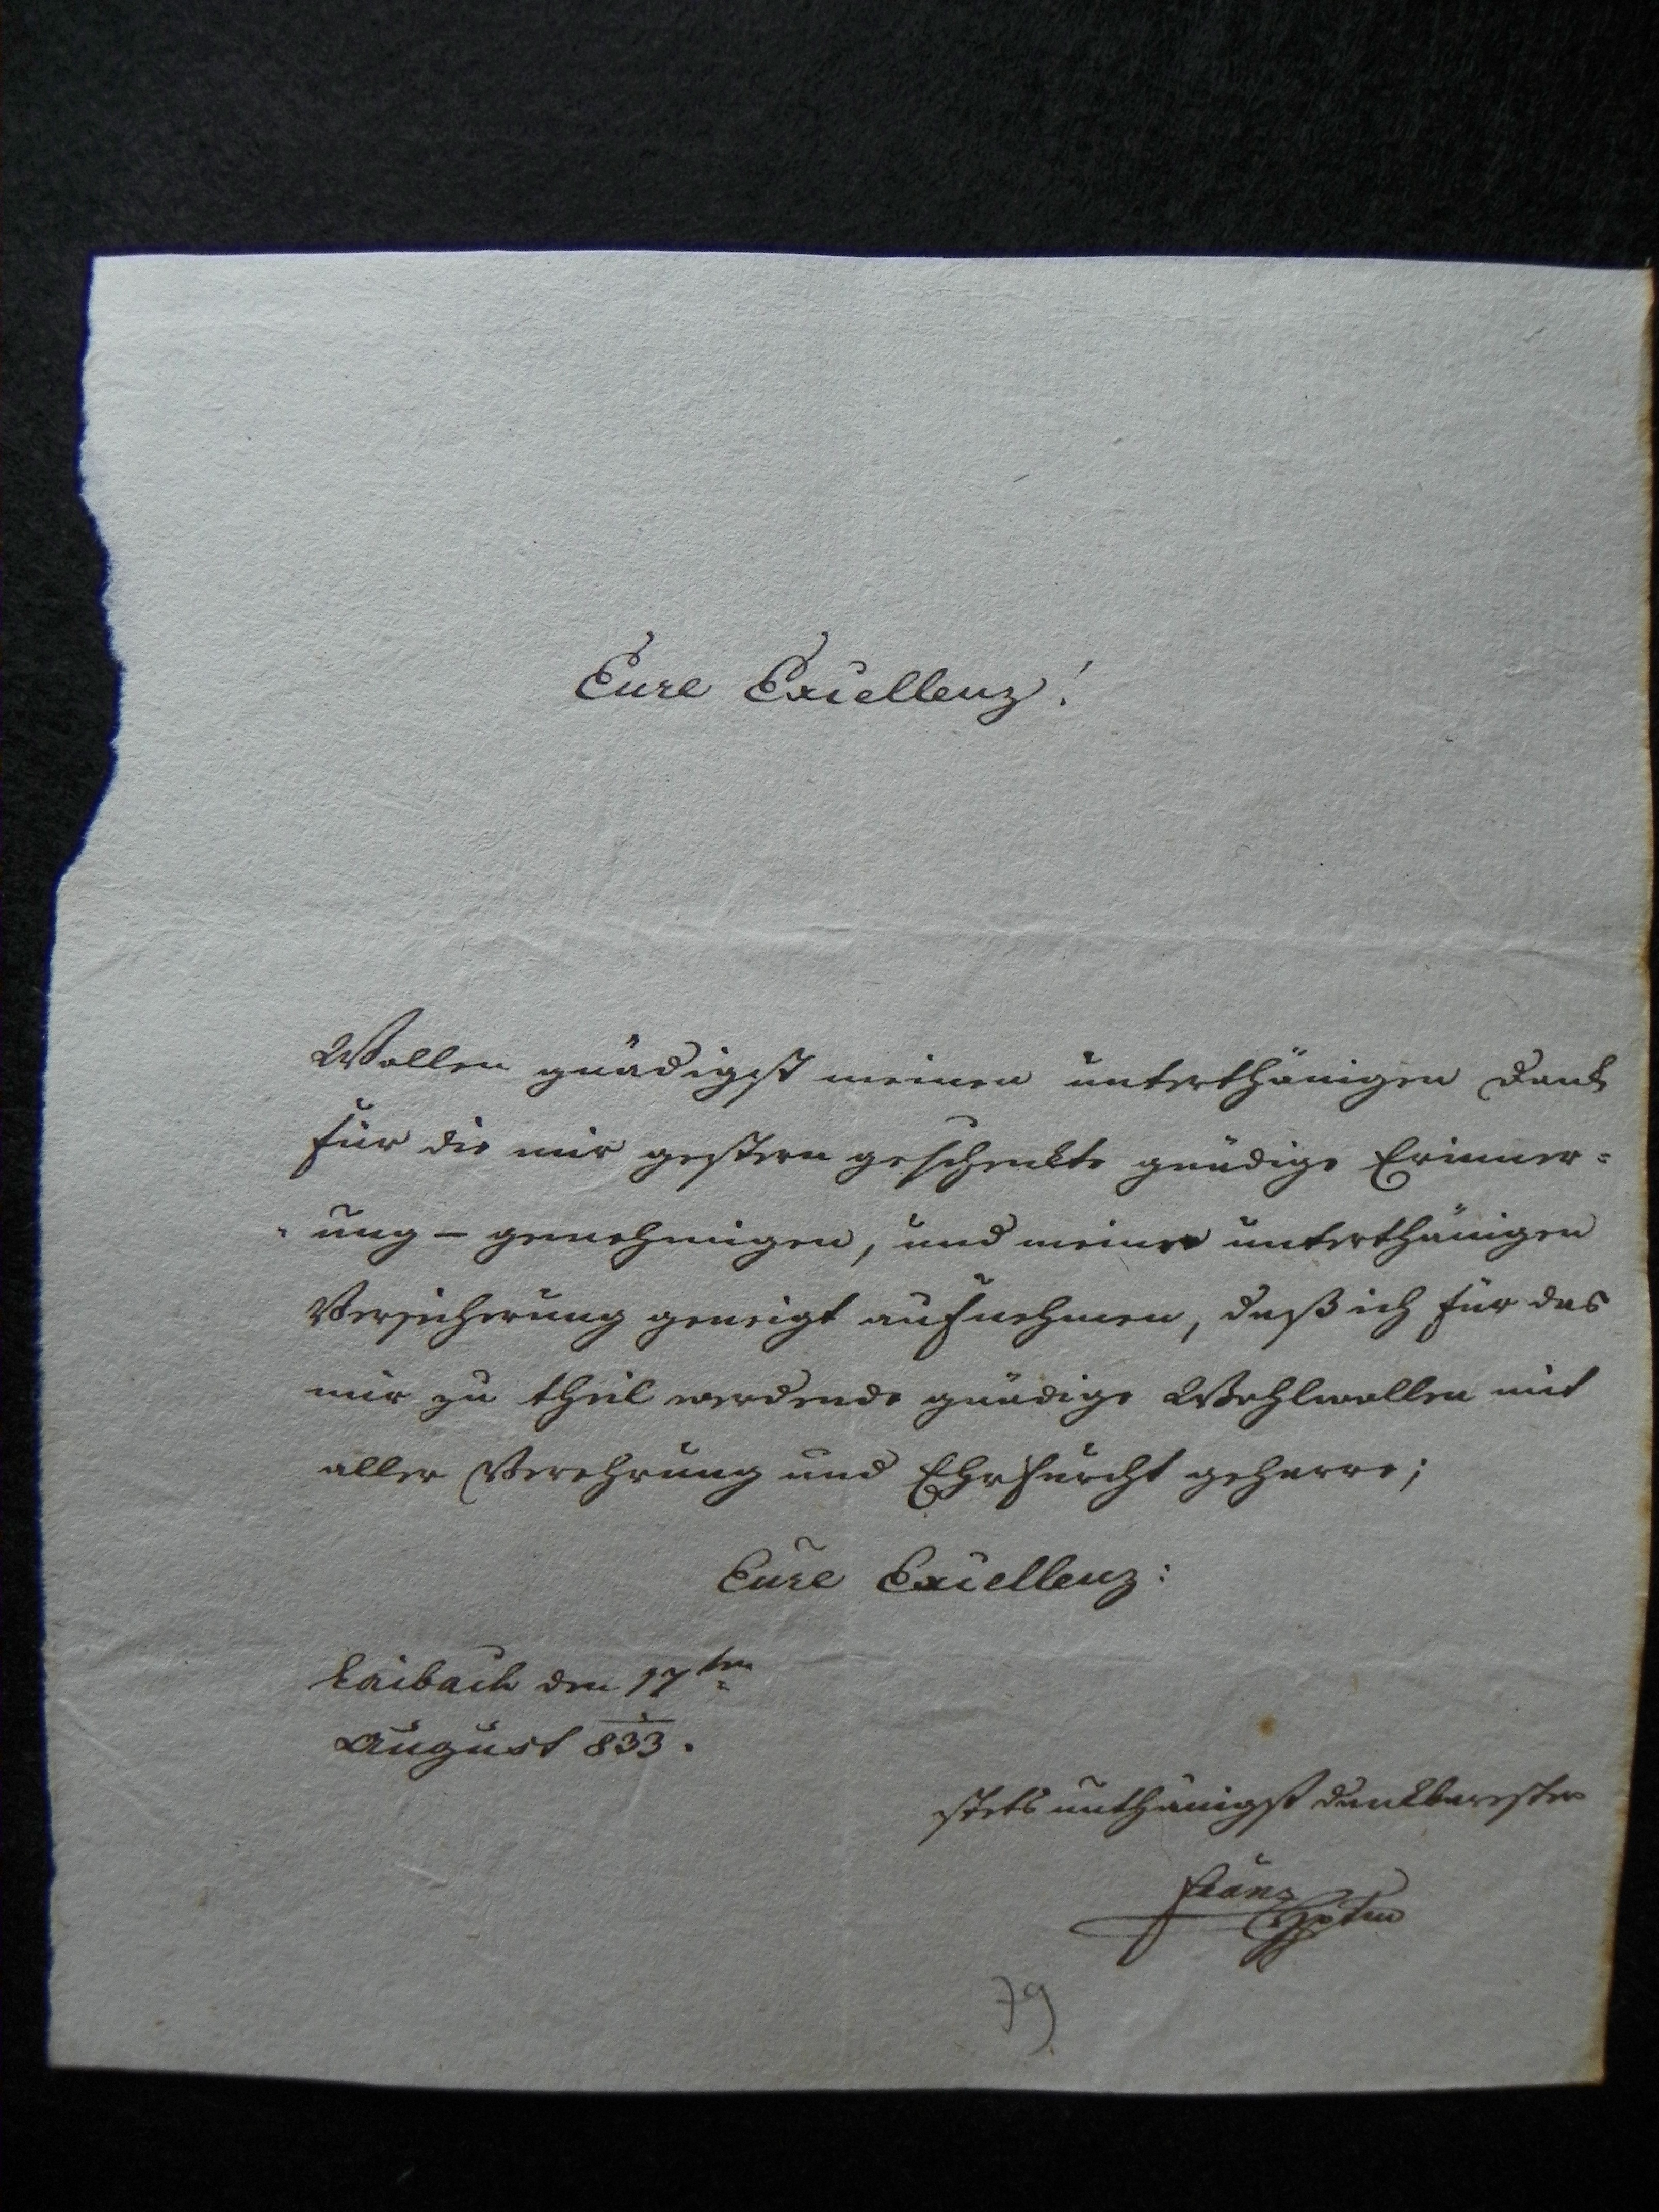 Eure Excellenz!
Wollen gnädigst meinen unterthänigen Dank
für die mir gestern geschenkte gnädige Erinner=
=ung – genehmigen, und meine unterthänigen
Versicherung geneigt aufnehmen, daß ich für das
mir zu theil werdende gnädige Wohlwollen mit
aller Verehrung und Ehrfurcht geharre;
Eure Excellenz:
Laibach den 17ten
August 833.
stets unthänigst dankbarester
Franz
79